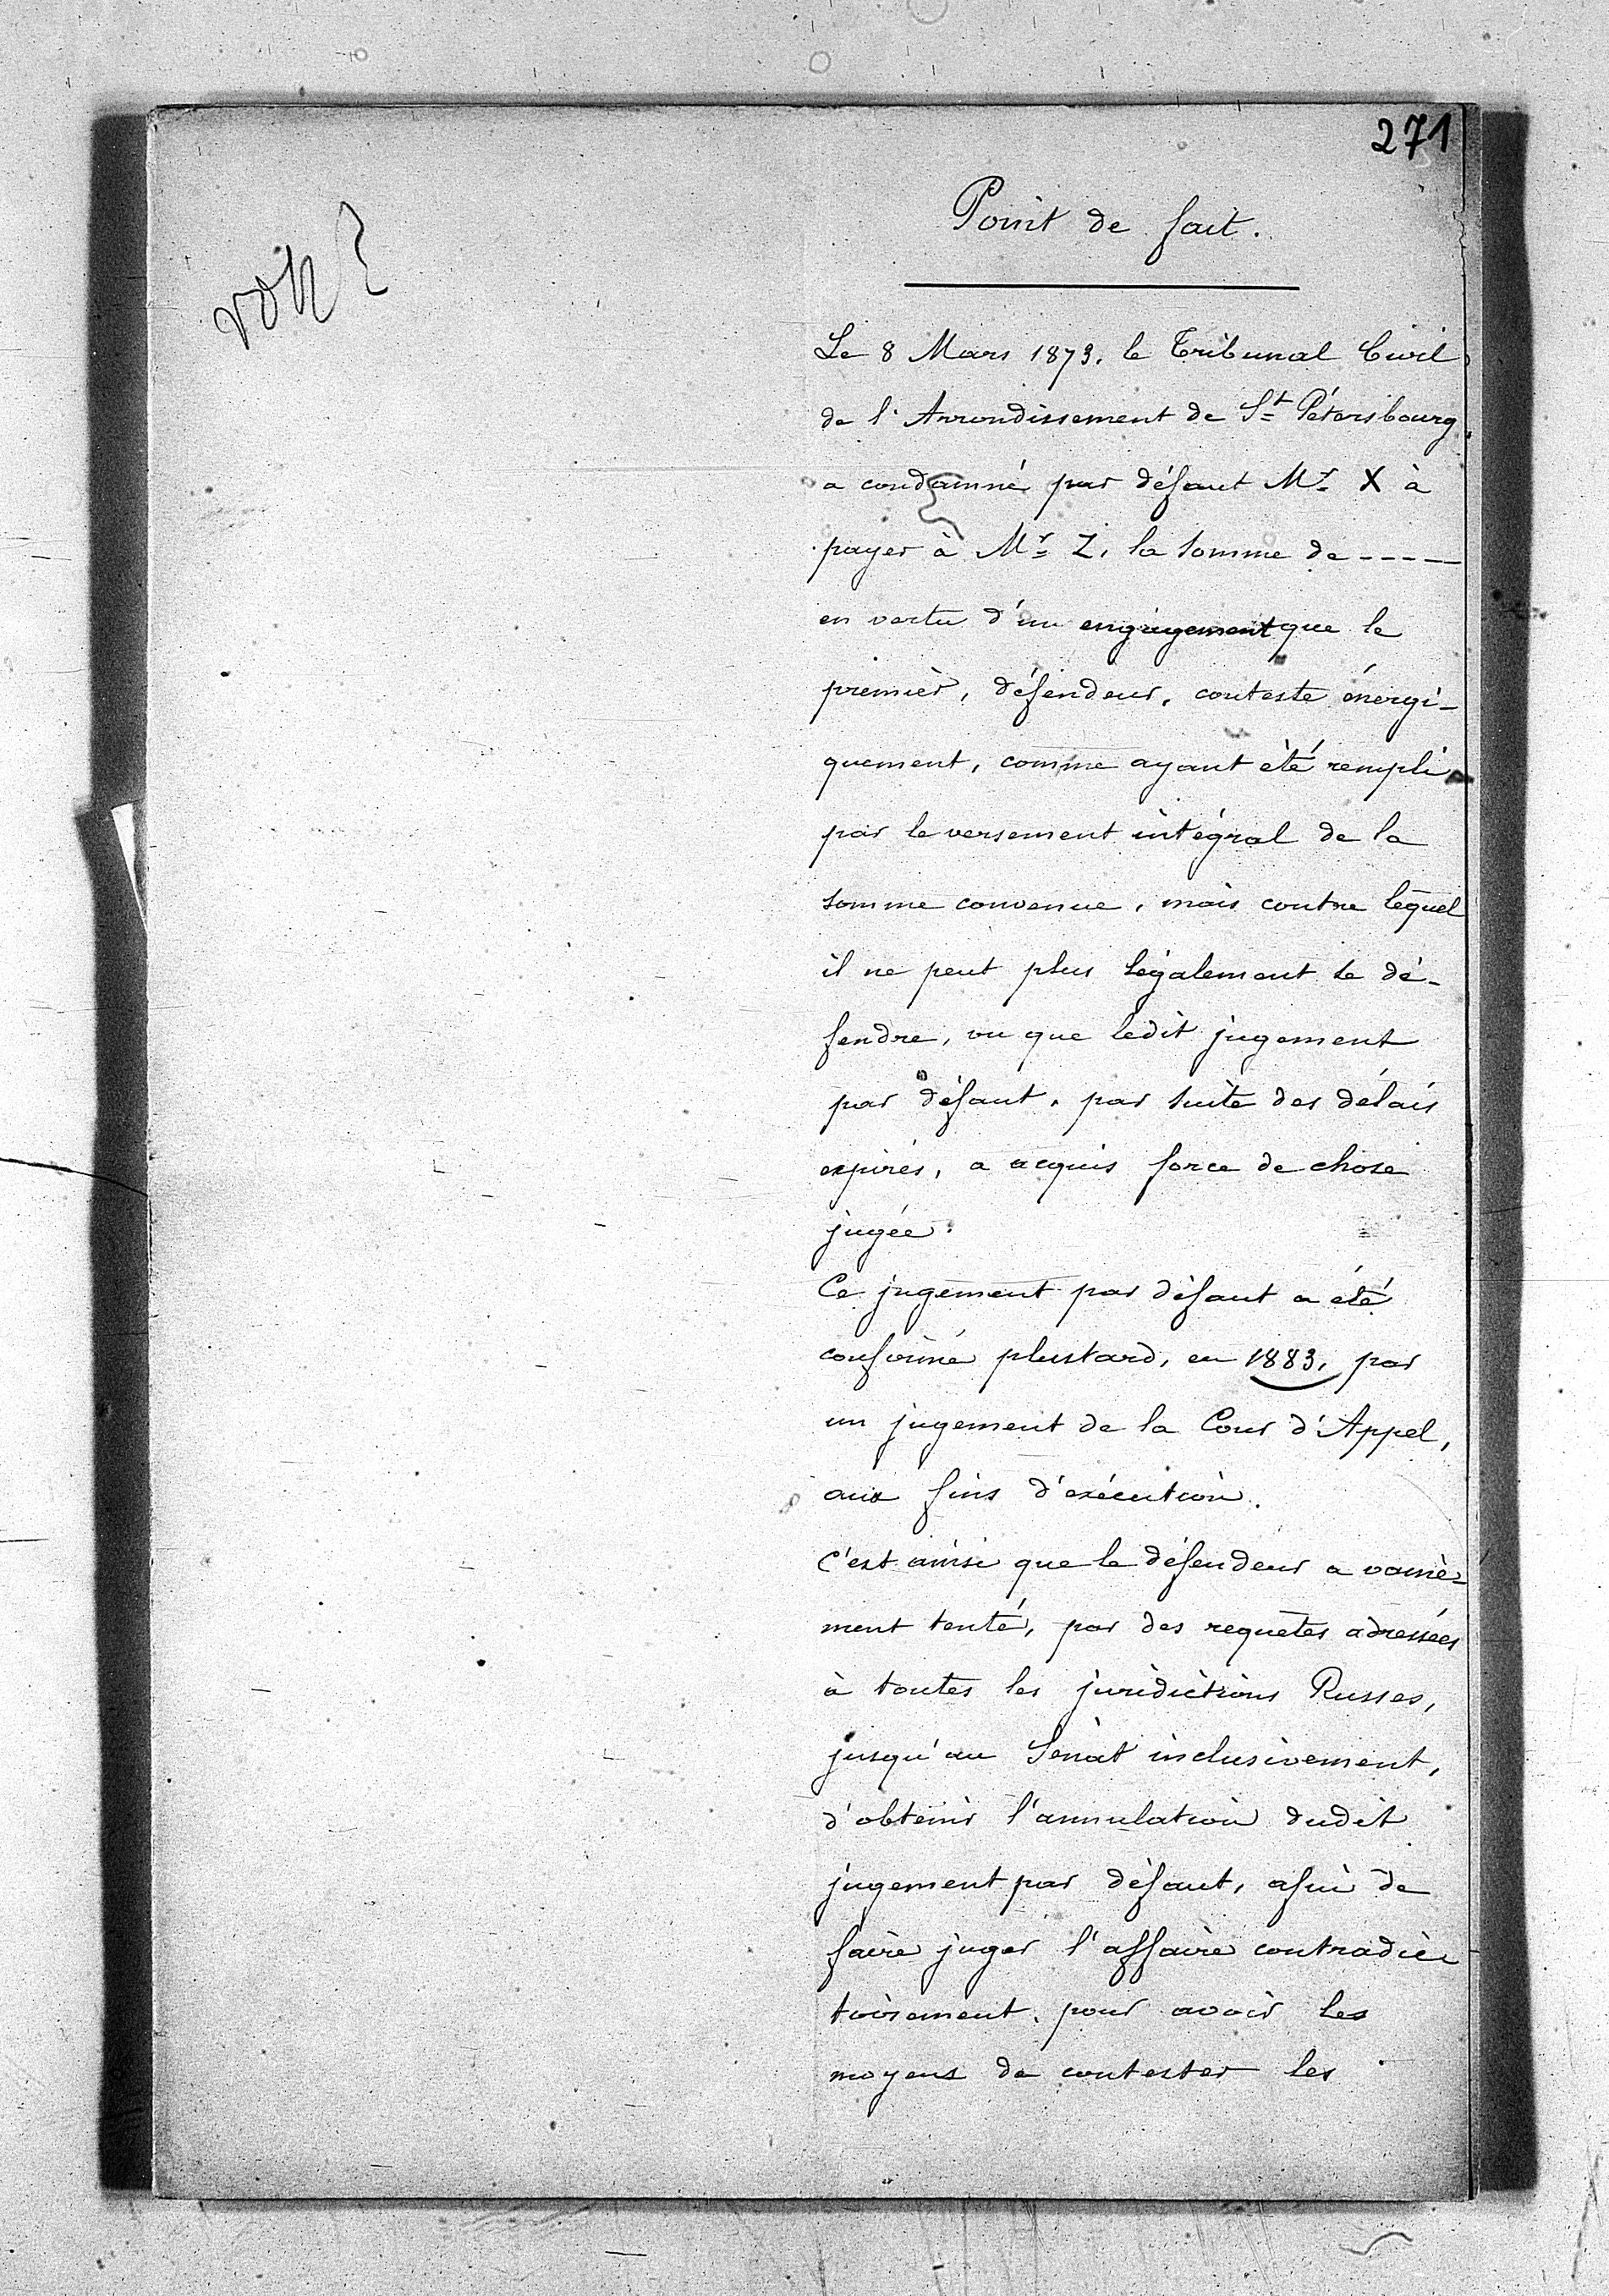 271
Point de fait.
Le 8 Mars 1873, le Tribunal Civil
de l'Arrondissement de St Pétersbourg
a condamné par défaut Mr X à
payer à Mr Z, la somme de - - - -
en vertu d'un engagement que le
premier, défendeur, conteste énergi-
quement, comme ayant été rempli
par le versement intégral de la
somme convenue, mais contre lequel
il ne peut plus légalement se dé-
fendre, vu que ledit jugement
par défaut, par suite des délais
expirés, a acquis force de chose
jugée.
Ce jugement par défaut a été
confirmé plustard, en 1883, par
un jugement de la Cour d'Appel,
aux fins d'exécution.
C'est ainsi que le défendeur a vaine-
ment tenté, par des requêtes adressées
à toutes les juridictions Russes,
jusqu'au Sénat inclusivement,
d'obtenir l'annulation dudit
jugement par défaut, afin de
faire juger l'affaire contradic-
toirement, pour avoir les
moyens de contester les